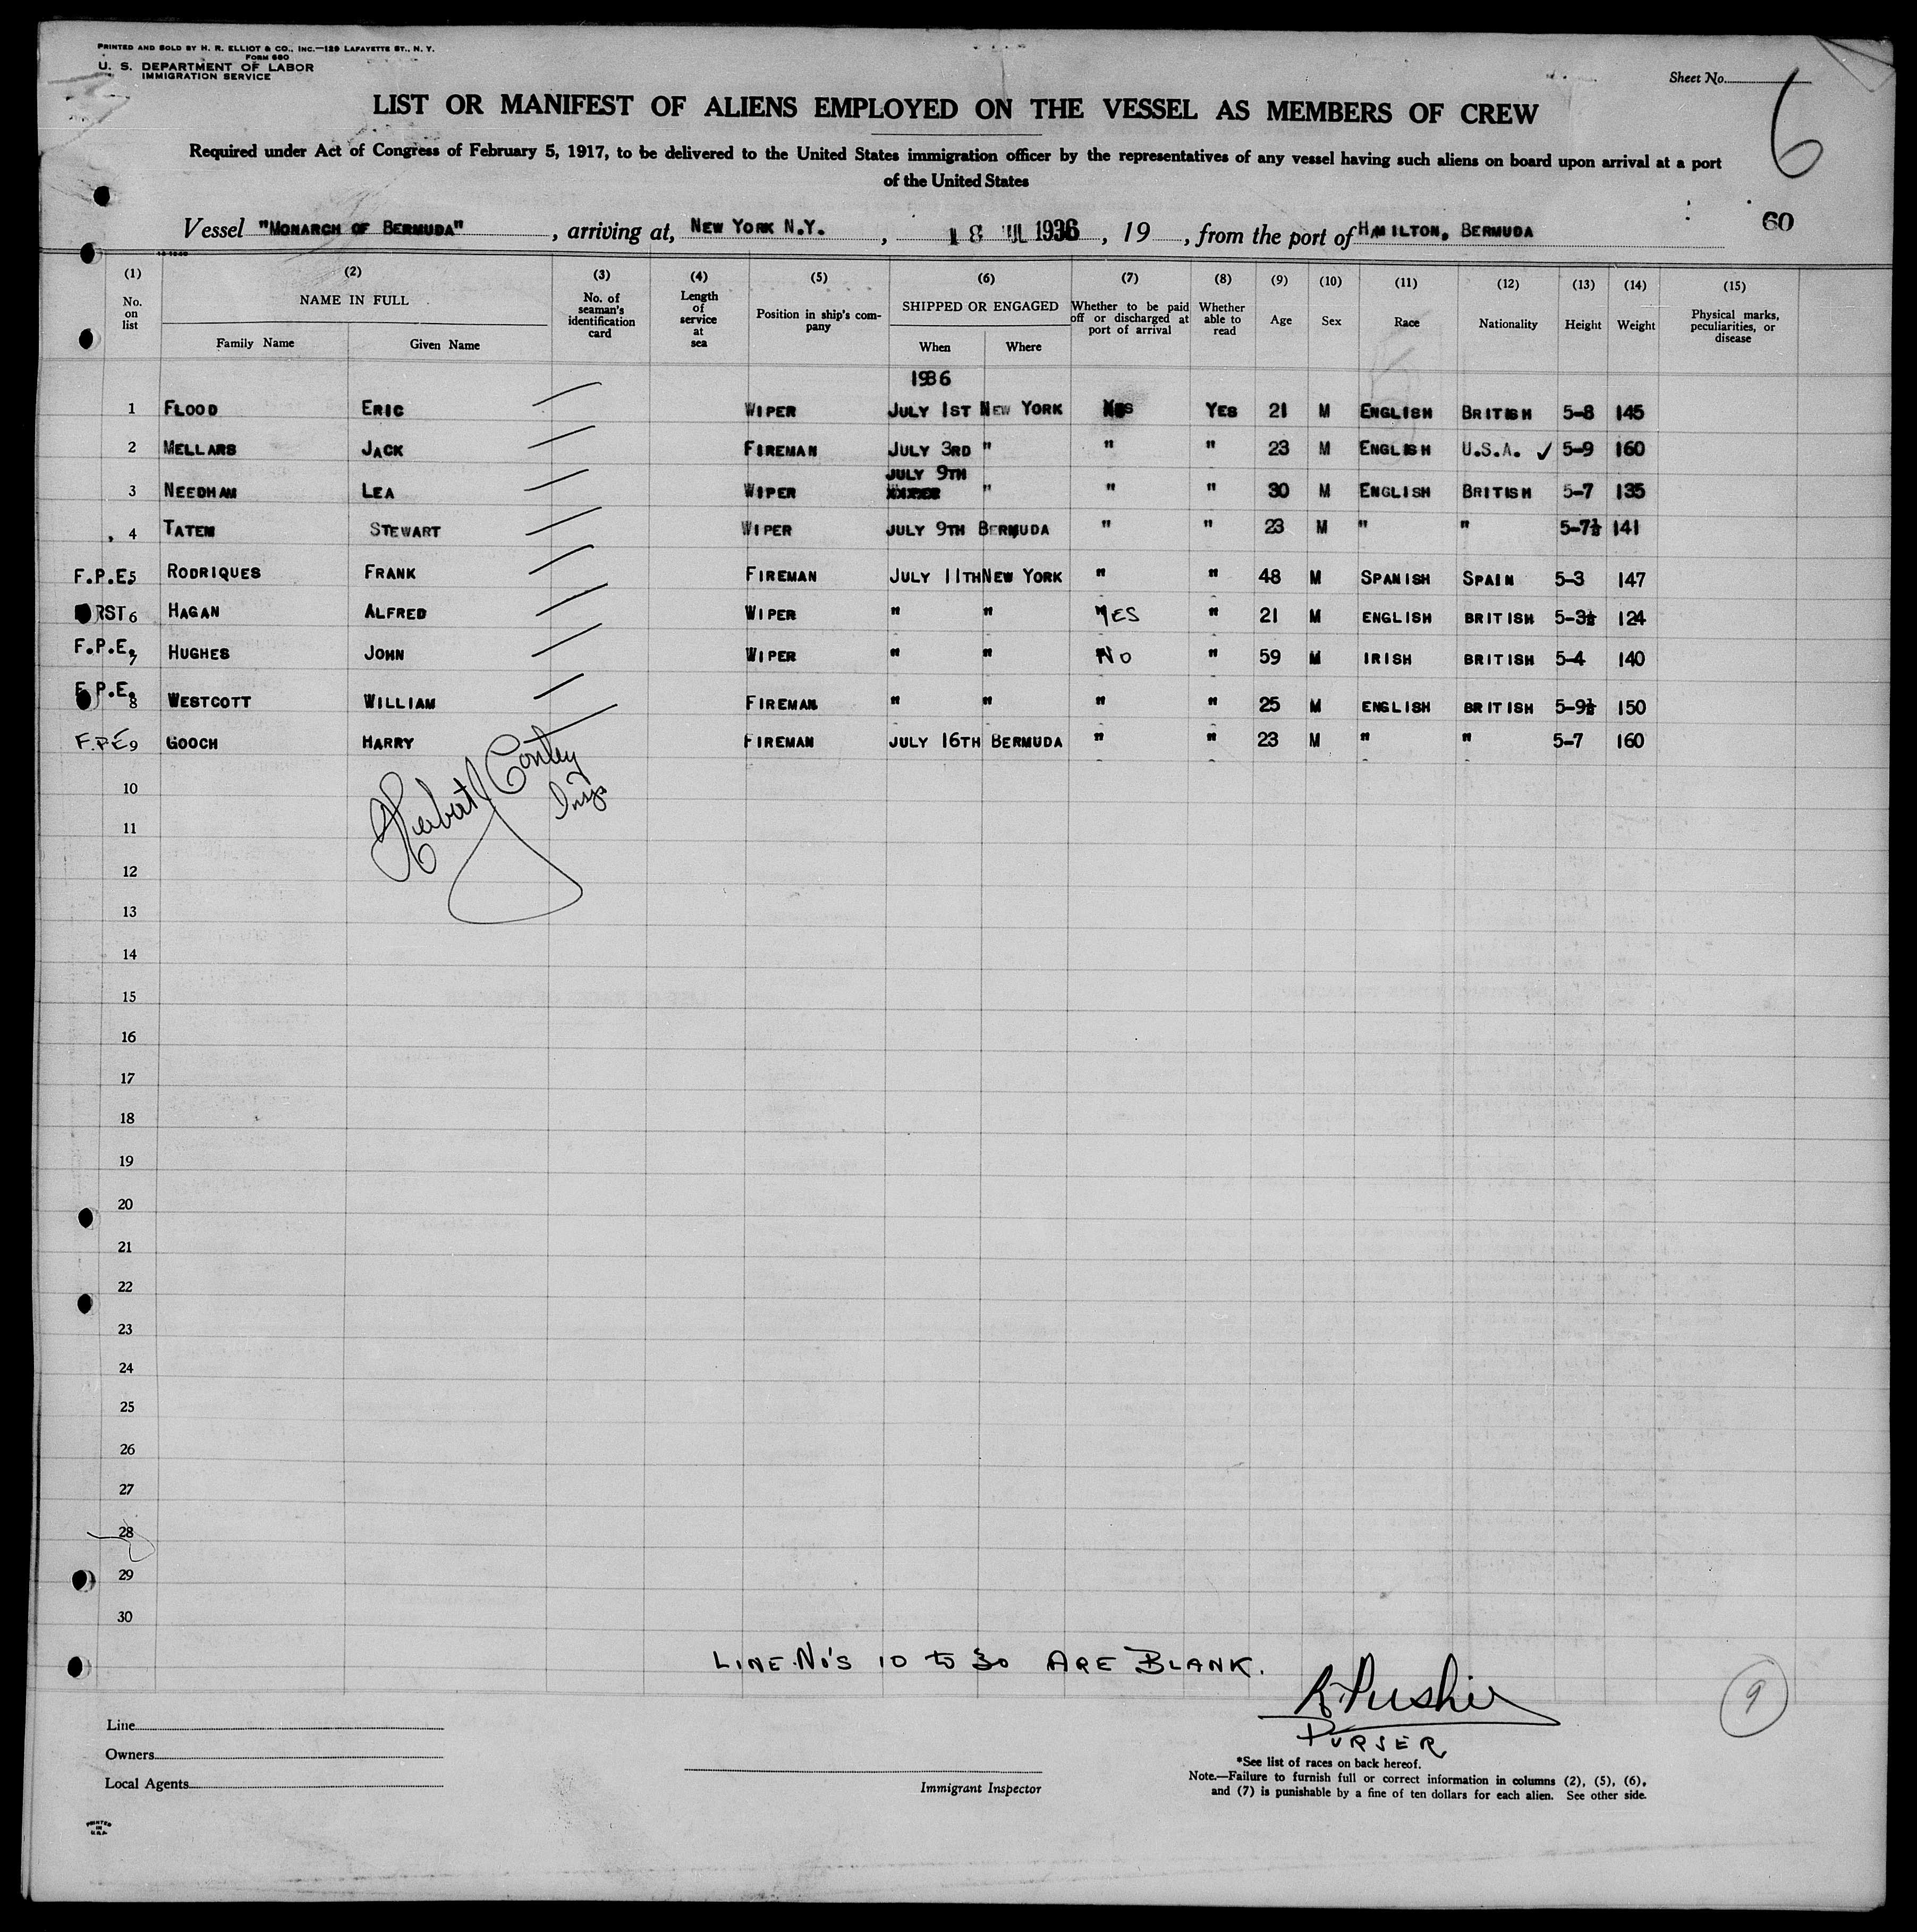 PRINTED AND SOLD BY H. R. ELLIOT & CO., INC.—129 LAFAYETTE ST., N. Y.
FORM 680
U. S. DEPARTMENT OF LABOR
IMMIGRATION SERVICE
Sheet No.
6
LIST OR MANIFEST OF ALIENS EMPLOYED ON THE VESSEL AS MEMBERS OF CREW
Required under Act of Congress of February 5, 1917, to be delivered to the United States immigration officer by the representatives of any vessel having such aliens on board upon arrival at a port
of the United States
60
Vessel "MONARCH OF BERMUDA", arriving at, NEW YORK N.Y., 18 JUL 1936, 19, from the port of HAMILTON, BERMUDA
(1) (2) (3) (4) (5) (6) (7) (8) (9) (10) (11) (12) (13) (14) (15)
No. on list NAME IN FULL No. of seaman's identification card Length of service at sea Position in ship's company SHIPPED OR ENGAGED Whether to be paid off or discharged at port of arrival Whether able to read Age Sex Race Nationality Height Weight Physical marks, peculiarities, or disease
Family Name Given Name When Where
1936
1 FLOOD ERIC WIPER JULY 1ST NEW YORK YES 21 M ENGLISH BRITISH 5-8 145
2 MELLARS JACK FIREMAN JULY 3RD " " " 23 M ENGLISH U.S.A. ✓ 5-9 160
JULY 9TH
3 NEEDHAM LEA WIPER " " " 30 M ENGLISH BRITISH 5-7 135
4 TATEM STEWART WIPER JULY 9TH BERMUDA " " 23 M " " 5-7½ 141
F.P.E. 5 RODRIQUES FRANK FIREMAN JULY 11TH NEW YORK " " 48 M SPANISH SPAIN 5-3 147
RST 6 HAGAN ALFRED WIPER " " YES " 21 M ENGLISH BRITISH 5-3½ 124
F.P.E. 7 HUGHES JOHN WIPER " " NO " 59 M IRISH BRITISH 5-4 140
F.P.E. 8 WESTCOTT WILLIAM FIREMAN " " " " 25 M ENGLISH BRITISH 5-9½ 150
F.P.E. 9 GOOCH HARRY FIREMAN JULY 16TH BERMUDA " " 23 M " " 5-7 160
Herbert J Conley
Insp
10
11
12
13
14
15
16
17
18
19
20
21
22
23
24
25
26
27
28
29
30
LINE No's 10 to 30 ARE BLANK.
PURSER
9
Line
Owners
Local Agents
Immigrant Inspector
*See list of races on back hereof.
Note.—Failure to furnish full or correct information in columns (2), (5), (6),
and (7) is punishable by a fine of ten dollars for each alien. See other side.
PRINTED
IN
U.S.A.